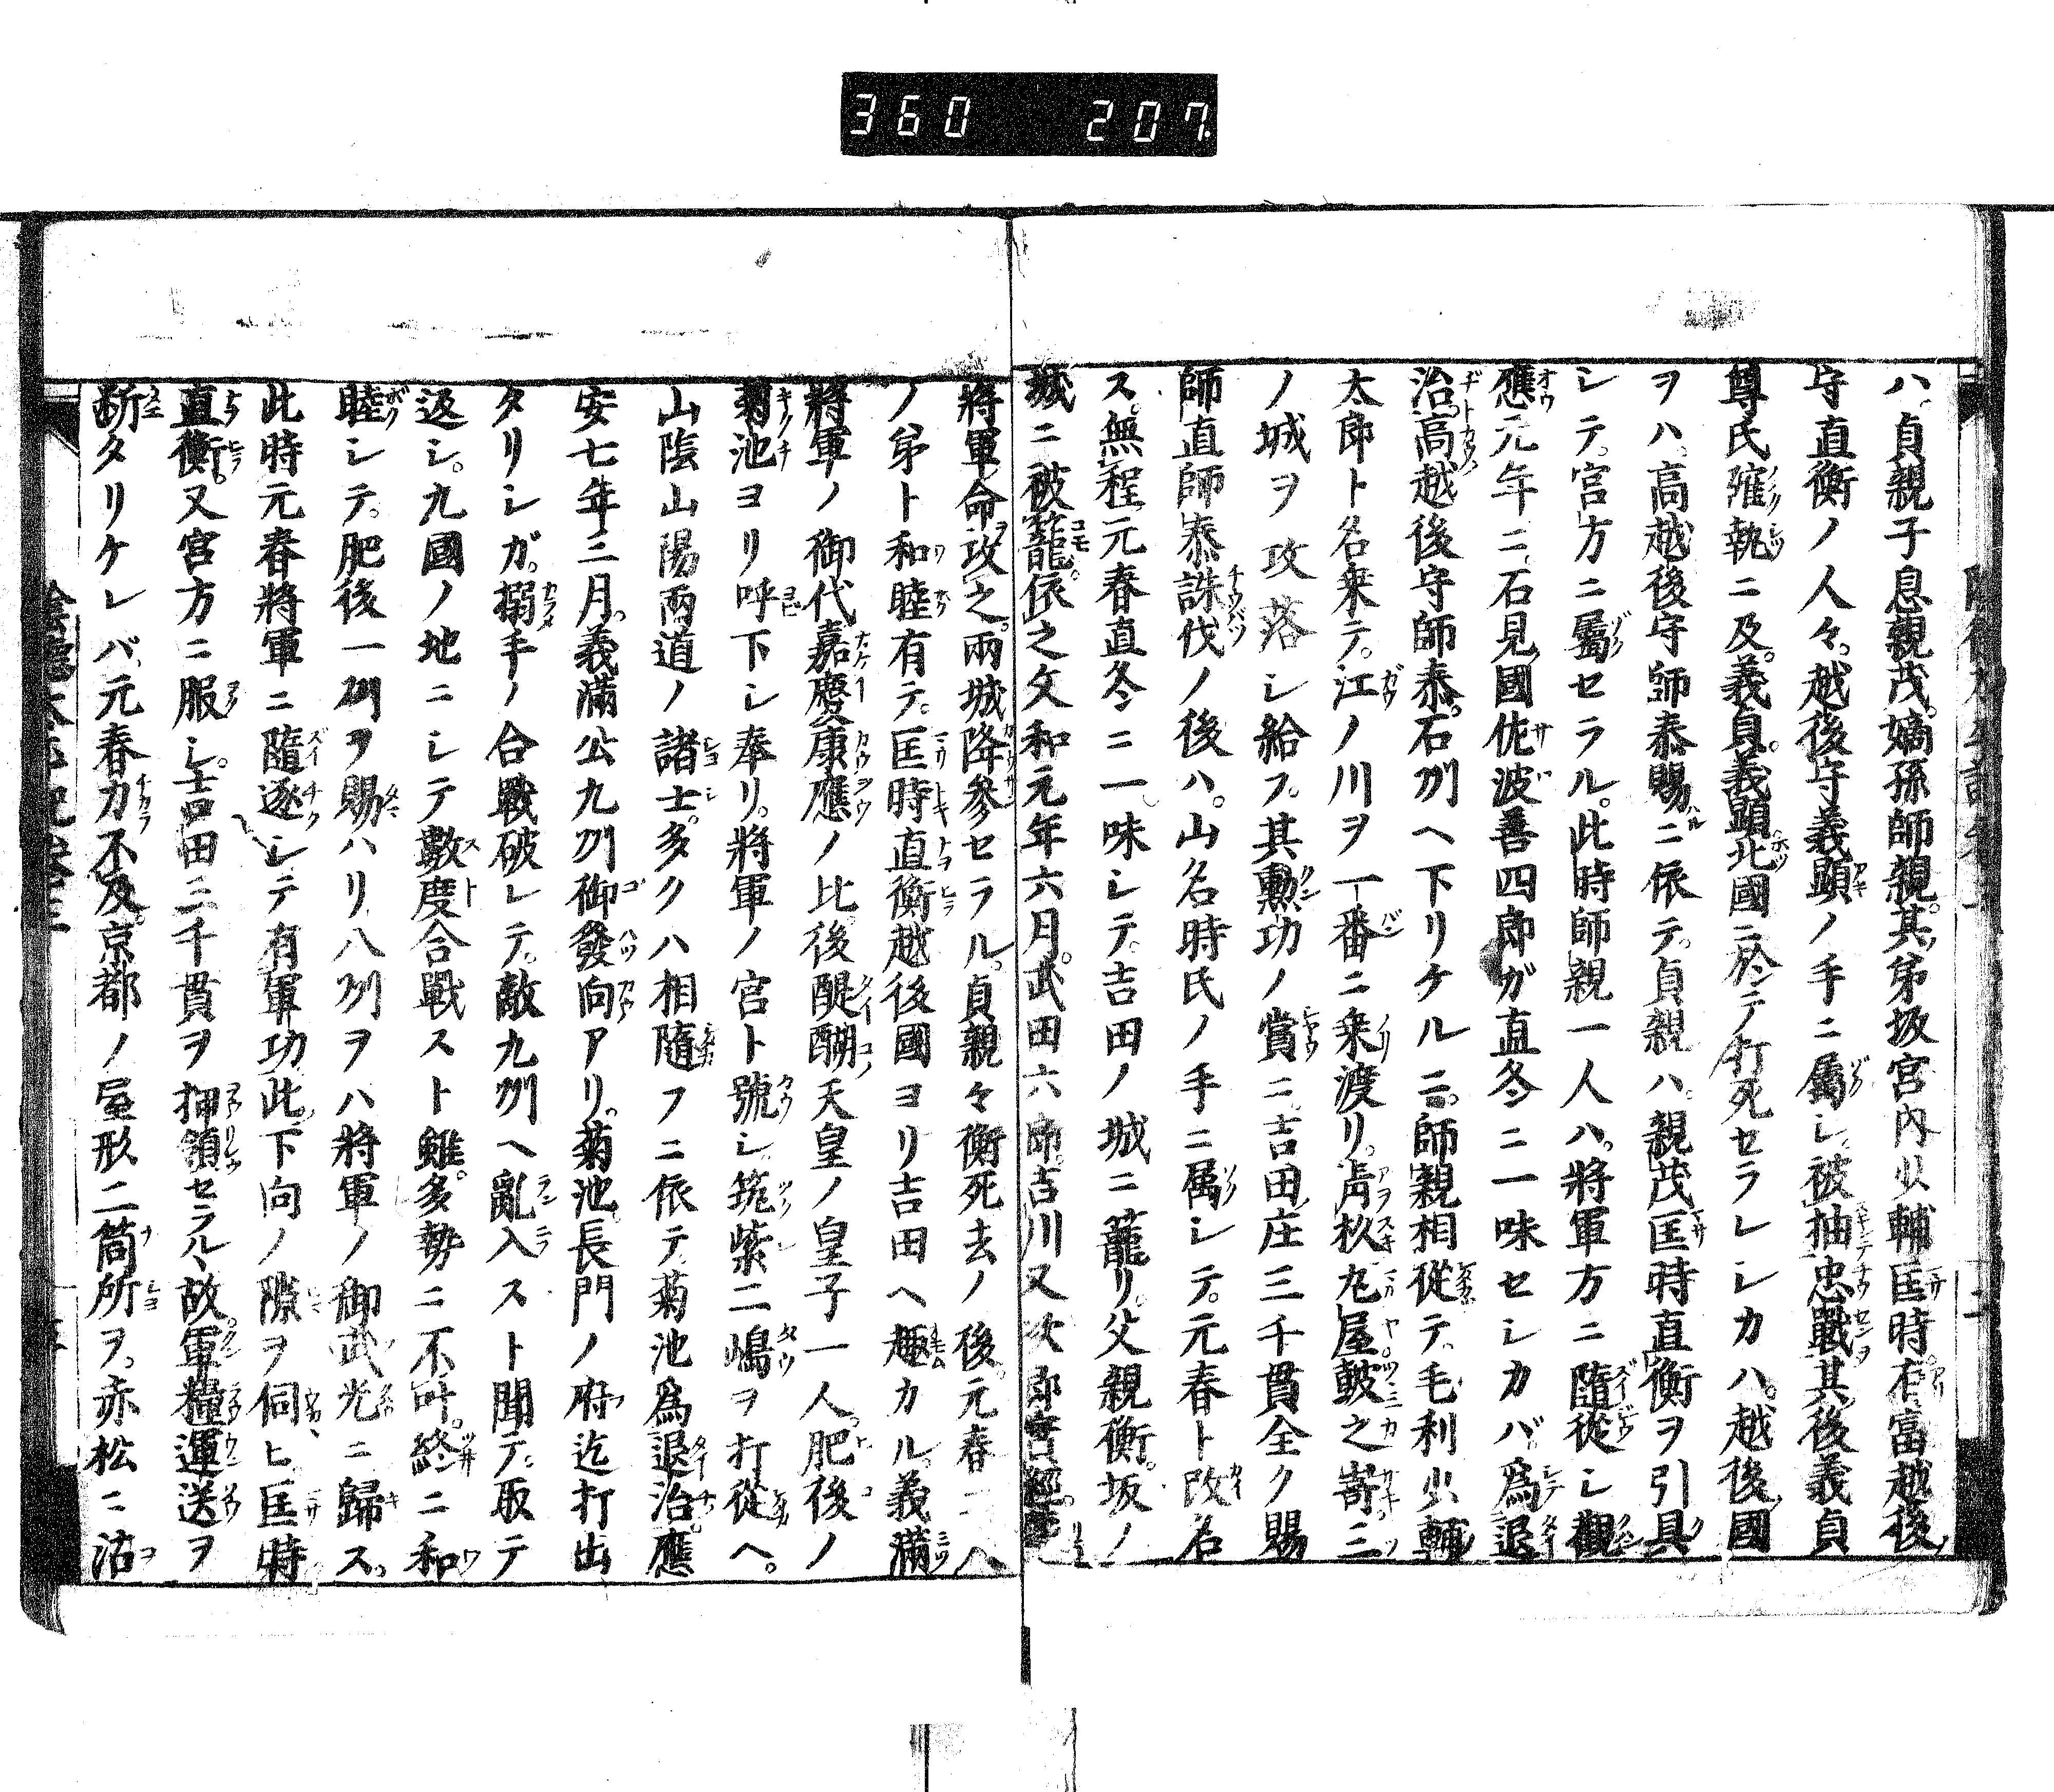 360 207
ハ。貞親子息親茂。嫡孫師親。其弟坂宮内少輔匡時。有冨越後
守直衡ノ人々。越後守義顕ノ手ニ属シ。被抽忠戰。其後義貞
尊氏確執ニ及。義貞。義顕北國ニ於テ打死セラレシカハ。越後國
ヲハ。高越後守師泰賜ニ依テ。貞親ハ。親茂匡時直衡ヲ引具
シテ。宮方ニ屬セラル。此時師親一人ハ。將軍方ニ隨從シ觀
應元年ニ。石見國佐波善四郎ガ直冬ニ一味セシカバ。為退
治。高越後守師泰。石州ヘ下リケルニ。師親相從テ。毛利少輔
太郎ト名乗テ。江ノ川ヲ一番ニ乗渡リ。青杦丸屋皷之嵜三
ノ城ヲ攻落シ給フ。其勲功ノ賞ニ。吉田庄三千貫全ク賜
師直師泰誅伐ノ後ハ。山名時氏ノ手ニ属シテ。元春ト改名
ス。無程元春直冬ニ一味シテ。吉田ノ城ニ籠リ。父親衡。坂ノ
城ニ被籠。依之文和元年六月。武田六郎。吉川又次郎
將軍命攻之。兩城降參セラル。貞親々衡死去ノ後。元春一ヘ
ノ弟ト和睦有テ。匡時直衡越後國ヨリ吉田ヘ趣カル。義滿
將軍ノ御代嘉慶康應ノ比。後醍醐天皇ノ皇子一人。肥後ノ
菊池ヨリ呼下シ奉リ。將軍ノ宮ト號シ。筑紫二嶋ヲ打從ヘ。
山陰山陽兩道ノ諸士。多クハ相隨フニ依テ。菊池為退治。應
安七年三月。義滿公九州御發向アリ。菊池。長門ノ府迄打出
タリシガ。搦手ノ合戰破レテ。敵九州ヘ亂入スト聞テ。取テ
返シ。九國ノ地ニシテ數度合戰スト雖。多勢ニ不叶。終ニ和
睦シテ。肥後一州ヲ賜ハリ。八州ヲハ將軍ノ御武光ニ歸ス。
此時元春將軍ニ隨逐シテ有軍功。此下向ノ隙ヲ伺ヒ。匡時
直衡。又宮方ニ服シ。吉田三千貫ヲ押領セラル。故軍糧運送ヲ
断タリケレバ。元春力不及。京都ノ屋形二箇所ヲ。赤松ニ沽